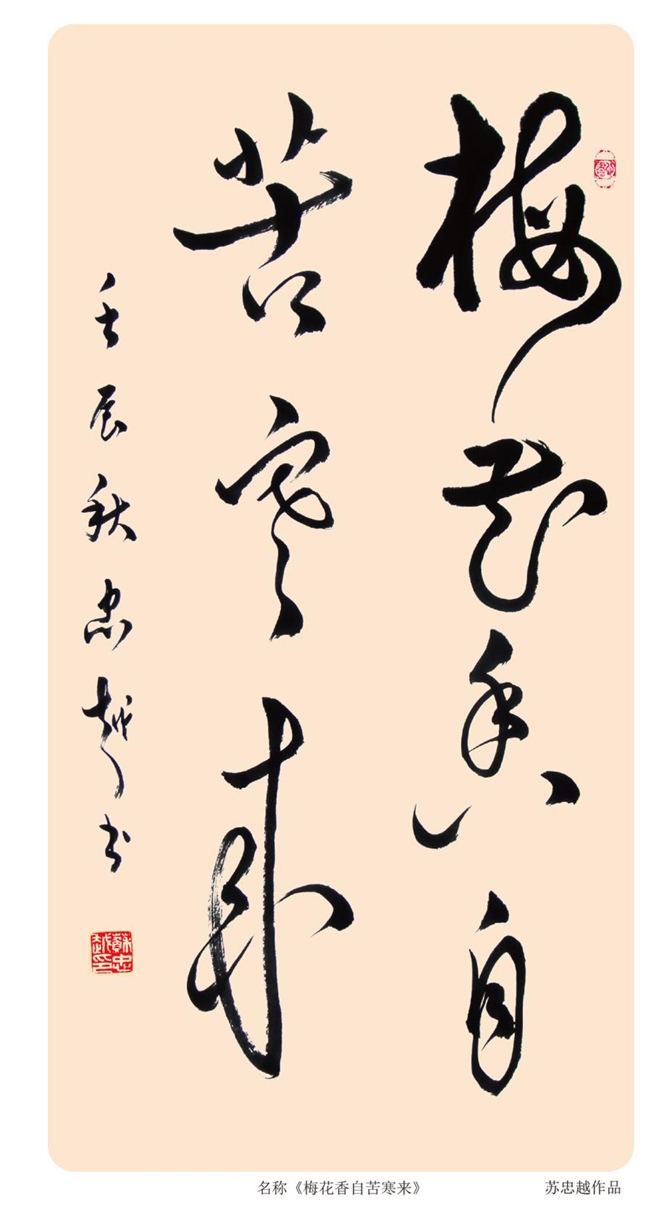 梅花香自
苦寒来
壬辰秋忠越书
苏忠越印
名称《梅花香自苦寒来》
苏忠越作品